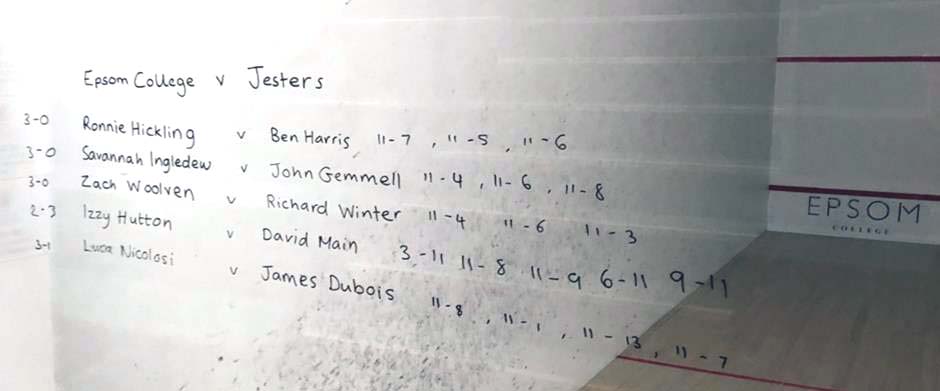 Epsom College v Jesters
3-0 Ronnie Hickling v Ben Harris 11-7, 11-5, 11-6
3-0 Savannah Ingledew v John Gemmell 11-4, 11-6, 11-8
3-0 Zach Woolven v Richard Winter 11-4 11-6 11-3
2-3 Izzy Hutton v David Main 3-11 11-8 11-9 6-11 9-11
3-1 Luca Nicolosi v James Dubois 11-8, 11-1, 11-13, 11-7
EPSOM
COLLEGE